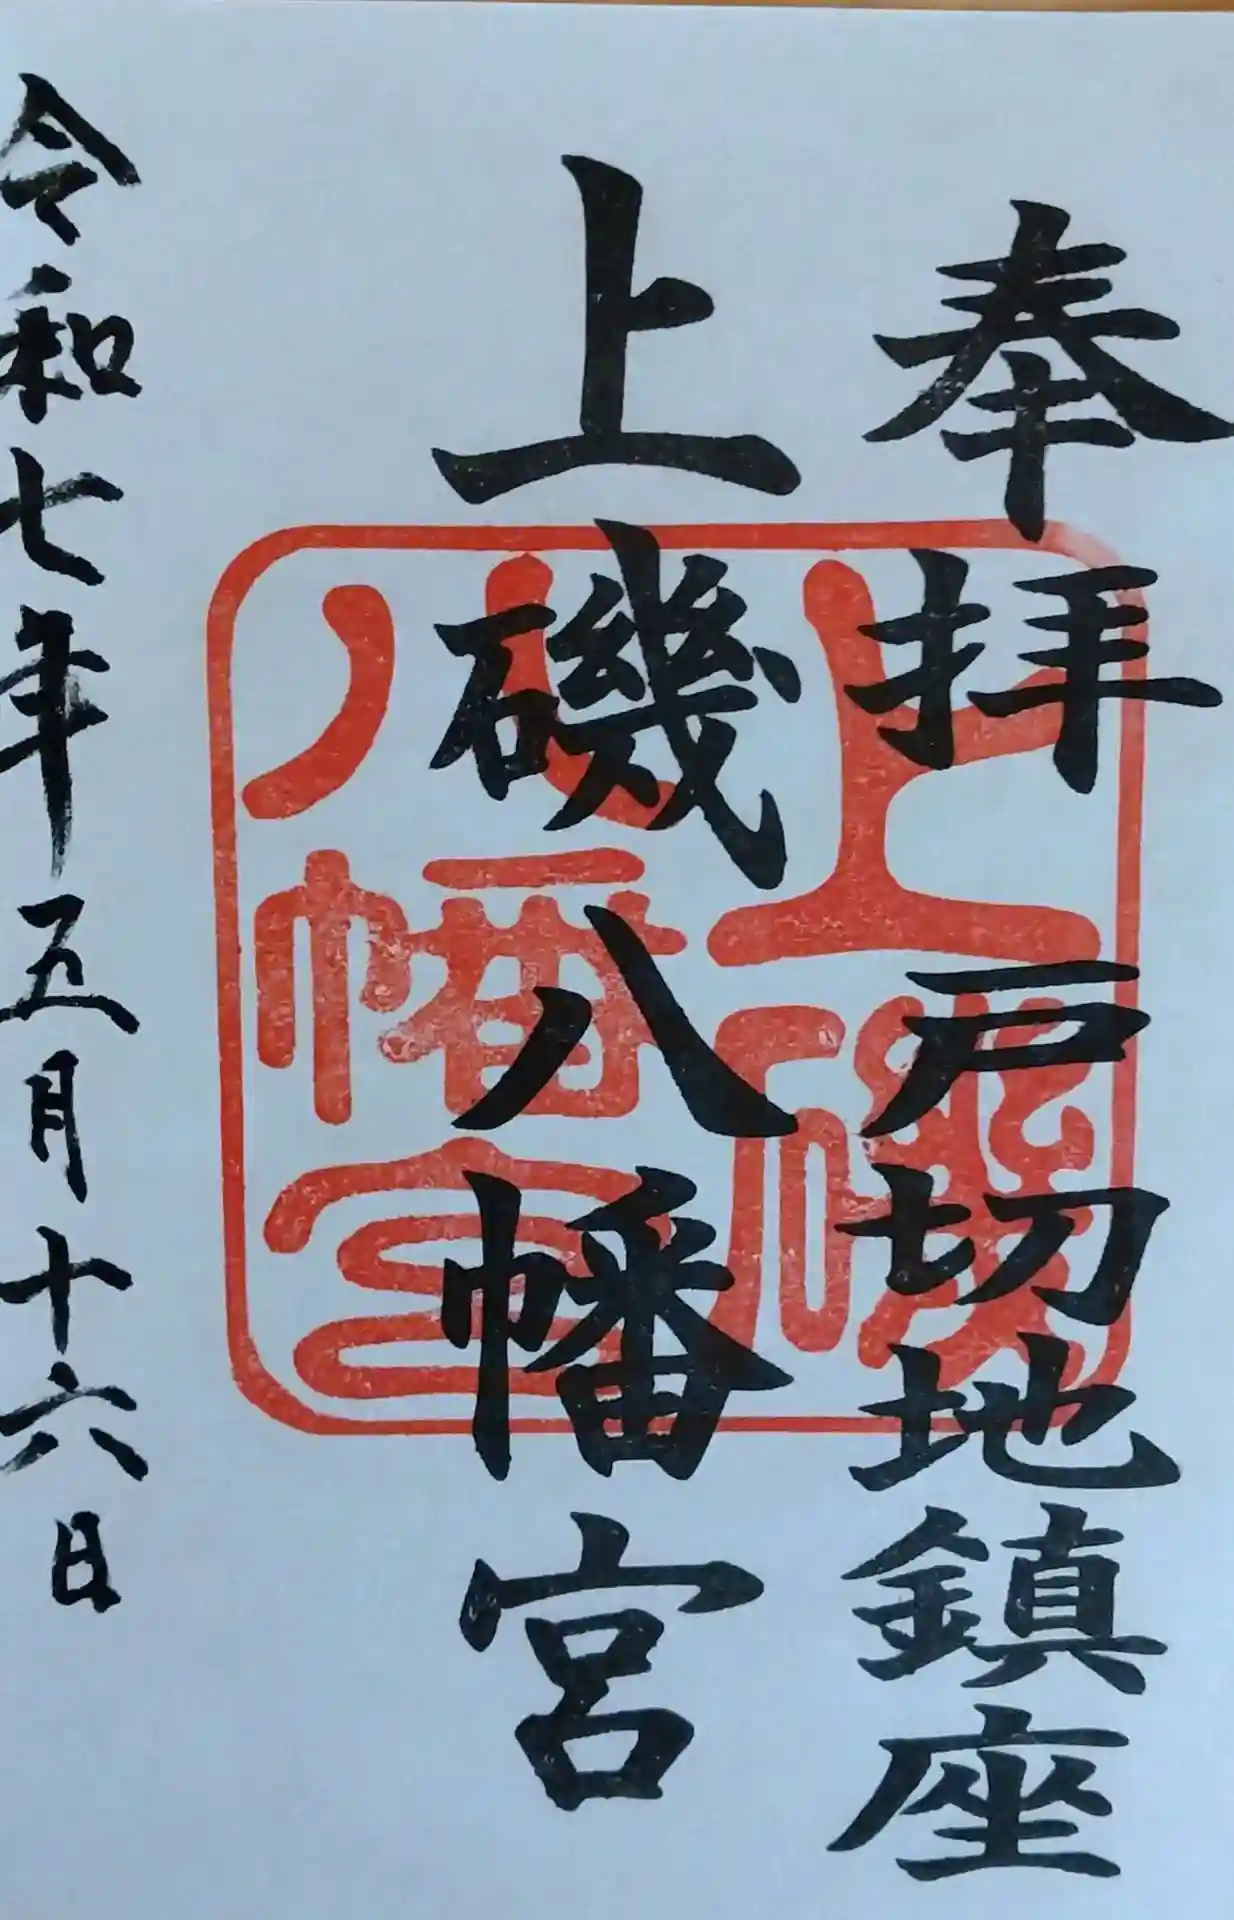 奉拝 戸切地鎮座
上磯八幡宮
上磯
八幡宮
令和七年五月十六日